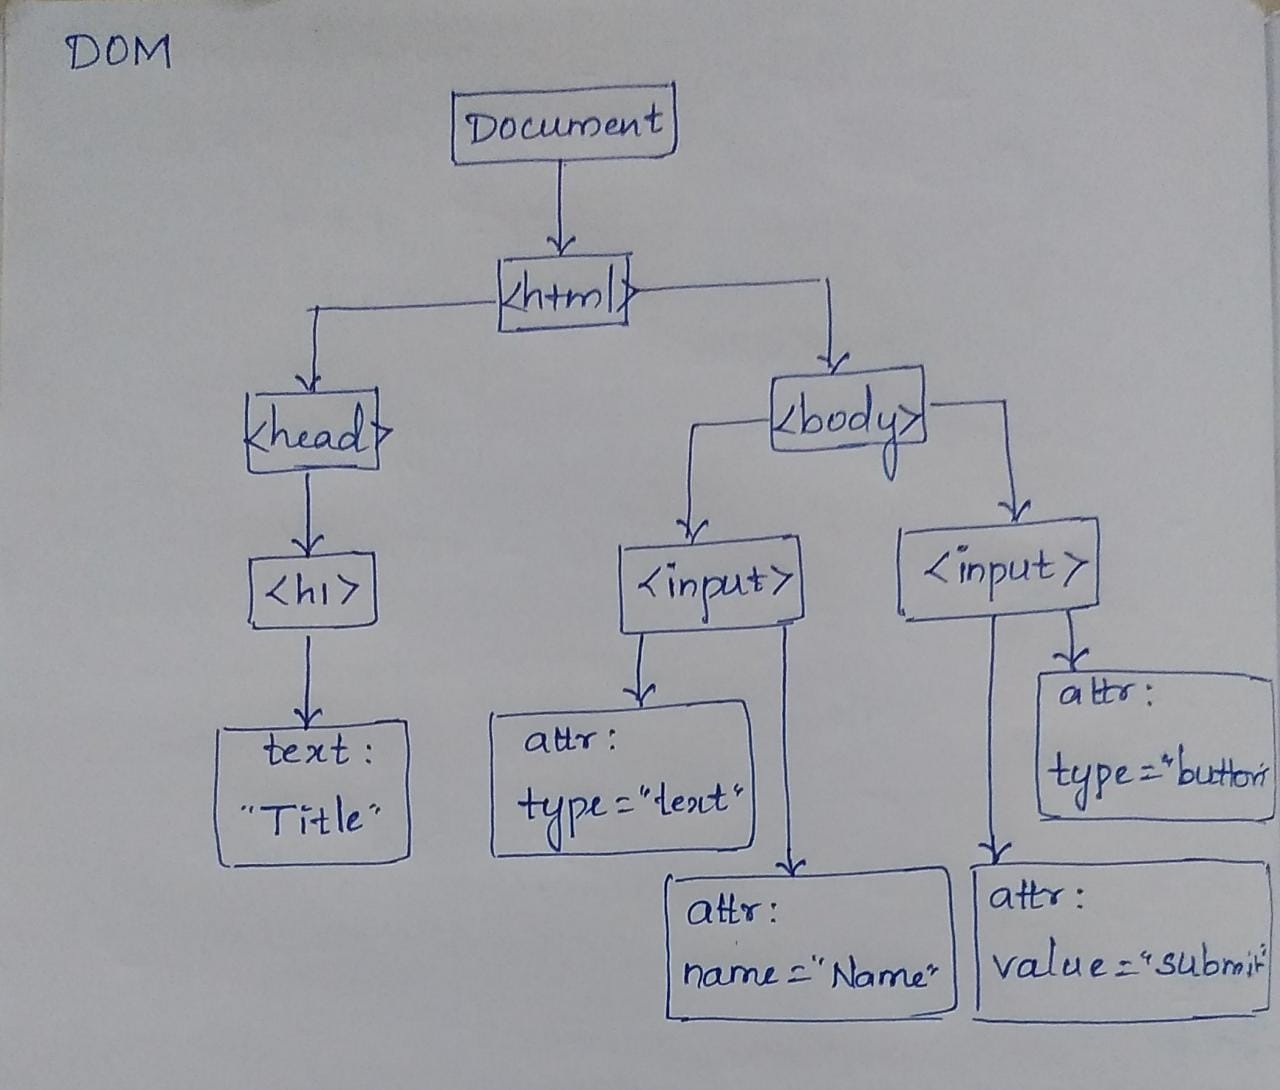 DOM
Document
<html>
<head>
<body>
<h1>
<input>
<input>
text:
"Title"
attr:
type="text"
attr:
type="button"
attr:
name="Name"
attr:
value="submit"